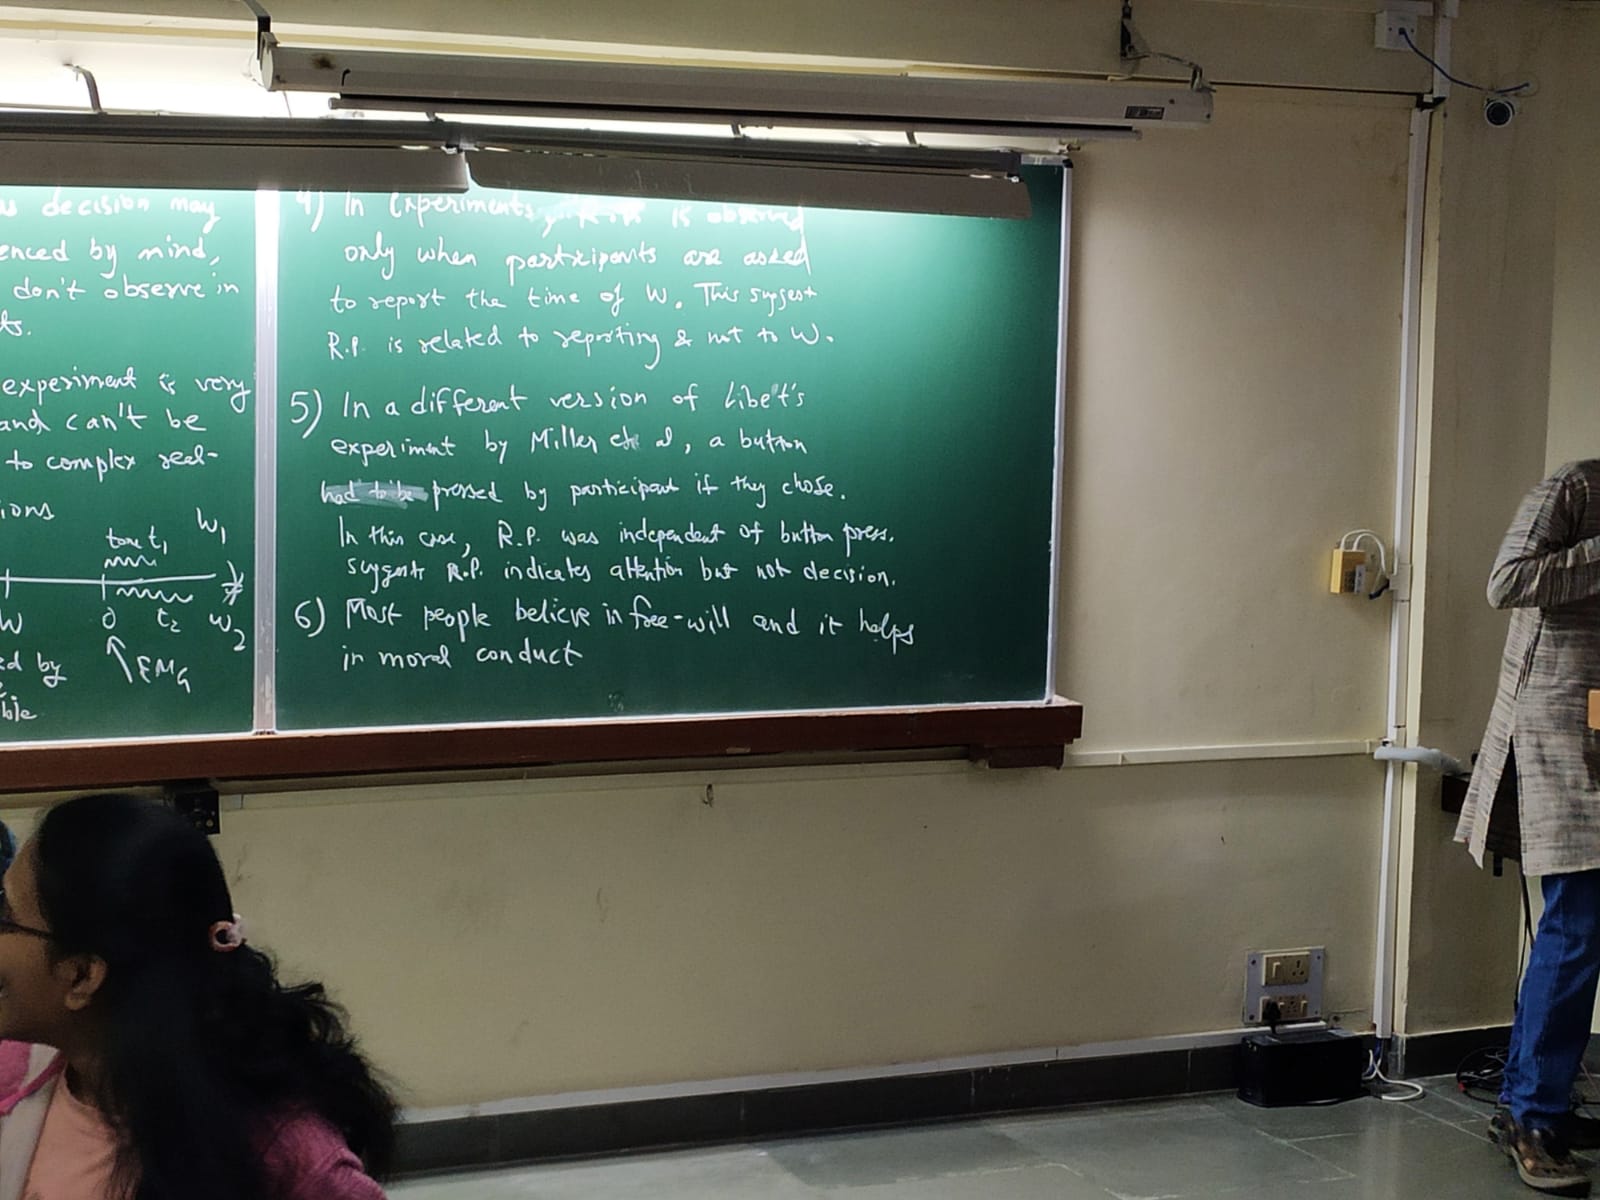 decision may
enced by mind,
don't observe in
ts.
experiment is very
and can't be
to complex real-
ions
tone t1 W1
W 0 t2 W2
ed by EMG
ble
4) In Experiments, is observed
only when participants are asked
to report the time of W. This suggest
R.P. is related to reporting & not to W.
5) In a different version of Libet's
experiment by Miller et al, a button
had to be pressed by participant if they chose.
In this case, R.P. was independent of button press.
suggests R.P. indicates attention but not decision.
6) Most people believe in free-will and it helps
in moral conduct